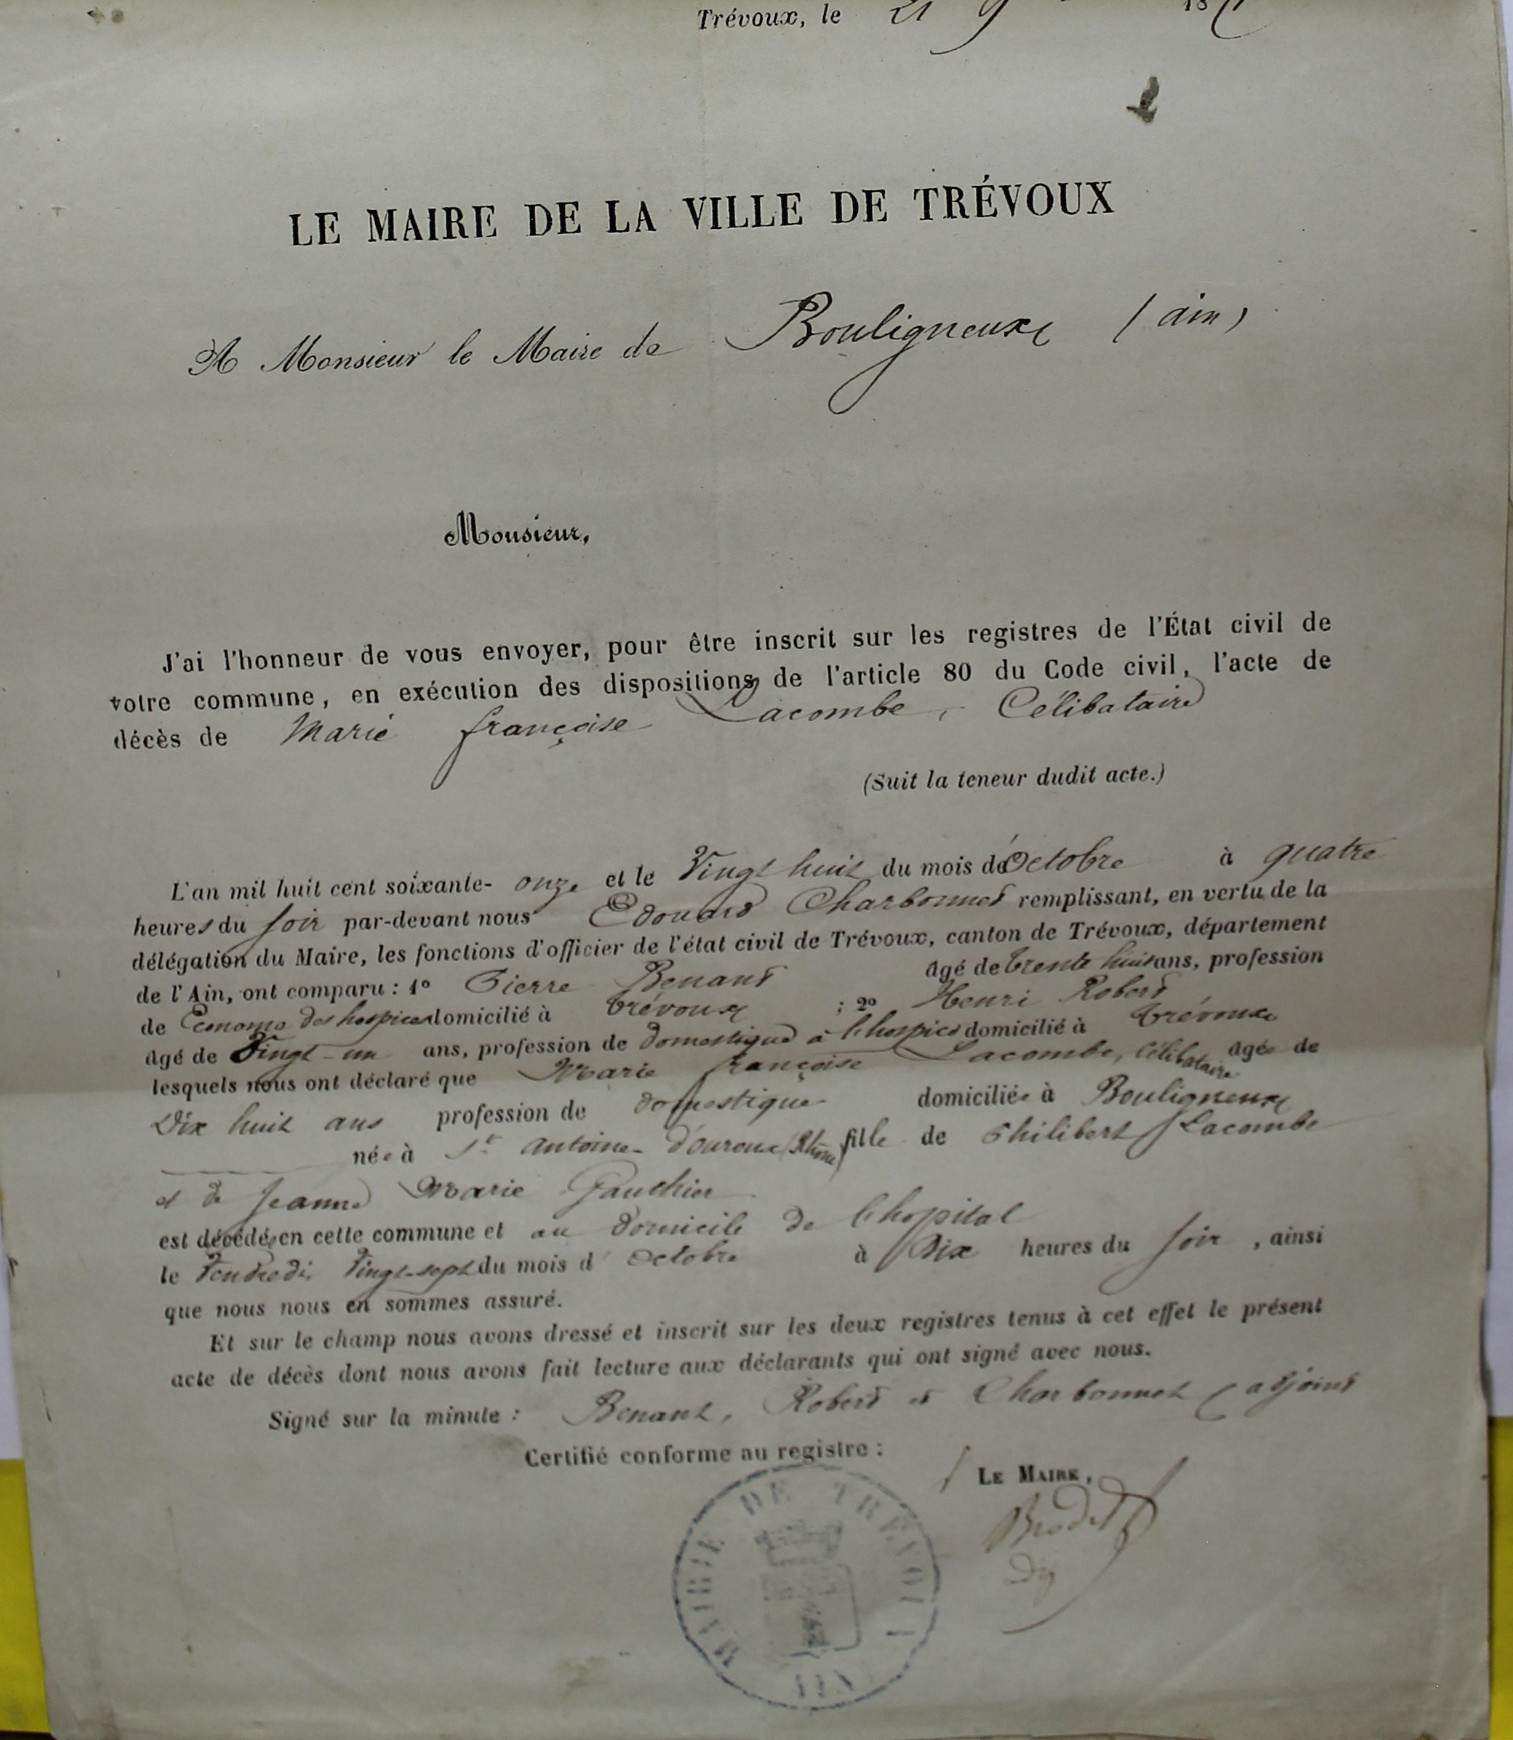 Trévoux, le 21 9 187
LE MAIRE DE LA VILLE DE TRÉVOUX
A Monsieur le Maire de Bouligneux (ain)
Monsieur,
J'ai l'honneur de vous envoyer, pour être inscrit sur les registres de l'État civil de
votre commune, en exécution des dispositions de l'article 80 du Code civil, l'acte de
décès de Marie françoise Lacombe, Célibataire
(Suit la teneur dudit acte.)
L'an mil huit cent soixante- onze et le Vingt huit du mois d'Octobre à quatre
heures du soir par-devant nous Edouard Charbonnet remplissant, en vertu de la
délégation du Maire, les fonctions d'officier de l'état civil de Trévoux, canton de Trévoux, département
de l'Ain, ont comparu : 1° Pierre Benant âgé de trente huit ans, profession
de Econome des hospices domicilié à trévoux ; 2° Henri Robert
âgé de Vingt-un ans, profession de domestique à l'hospice domicilié à trévoux
lesquels nous ont déclaré que Marie françoise Lacombe, célibataire âgée de
Dix huit ans profession de domestique domiciliée à Bouligneux
née à St antoine d'ouroux (Rhône) fille de Philibert Lacombe
et de Jeanne Marie Gauthier
est décédée en cette commune et au domicile de l'hopital
le Vendredi Vingt-sept du mois d'Octobre à Dix heures du soir, ainsi
que nous nous en sommes assuré.
Et sur le champ nous avons dressé et inscrit sur les deux registres tenus à cet effet le présent
acte de décès dont nous avons fait lecture aux déclarants qui ont signé avec nous.
Signé sur la minute : Benant, Robert et Charbonnet adjoint
Certifié conforme au registre :
LE MAIRE,
MAIRIE DE TREVOUX
AIN